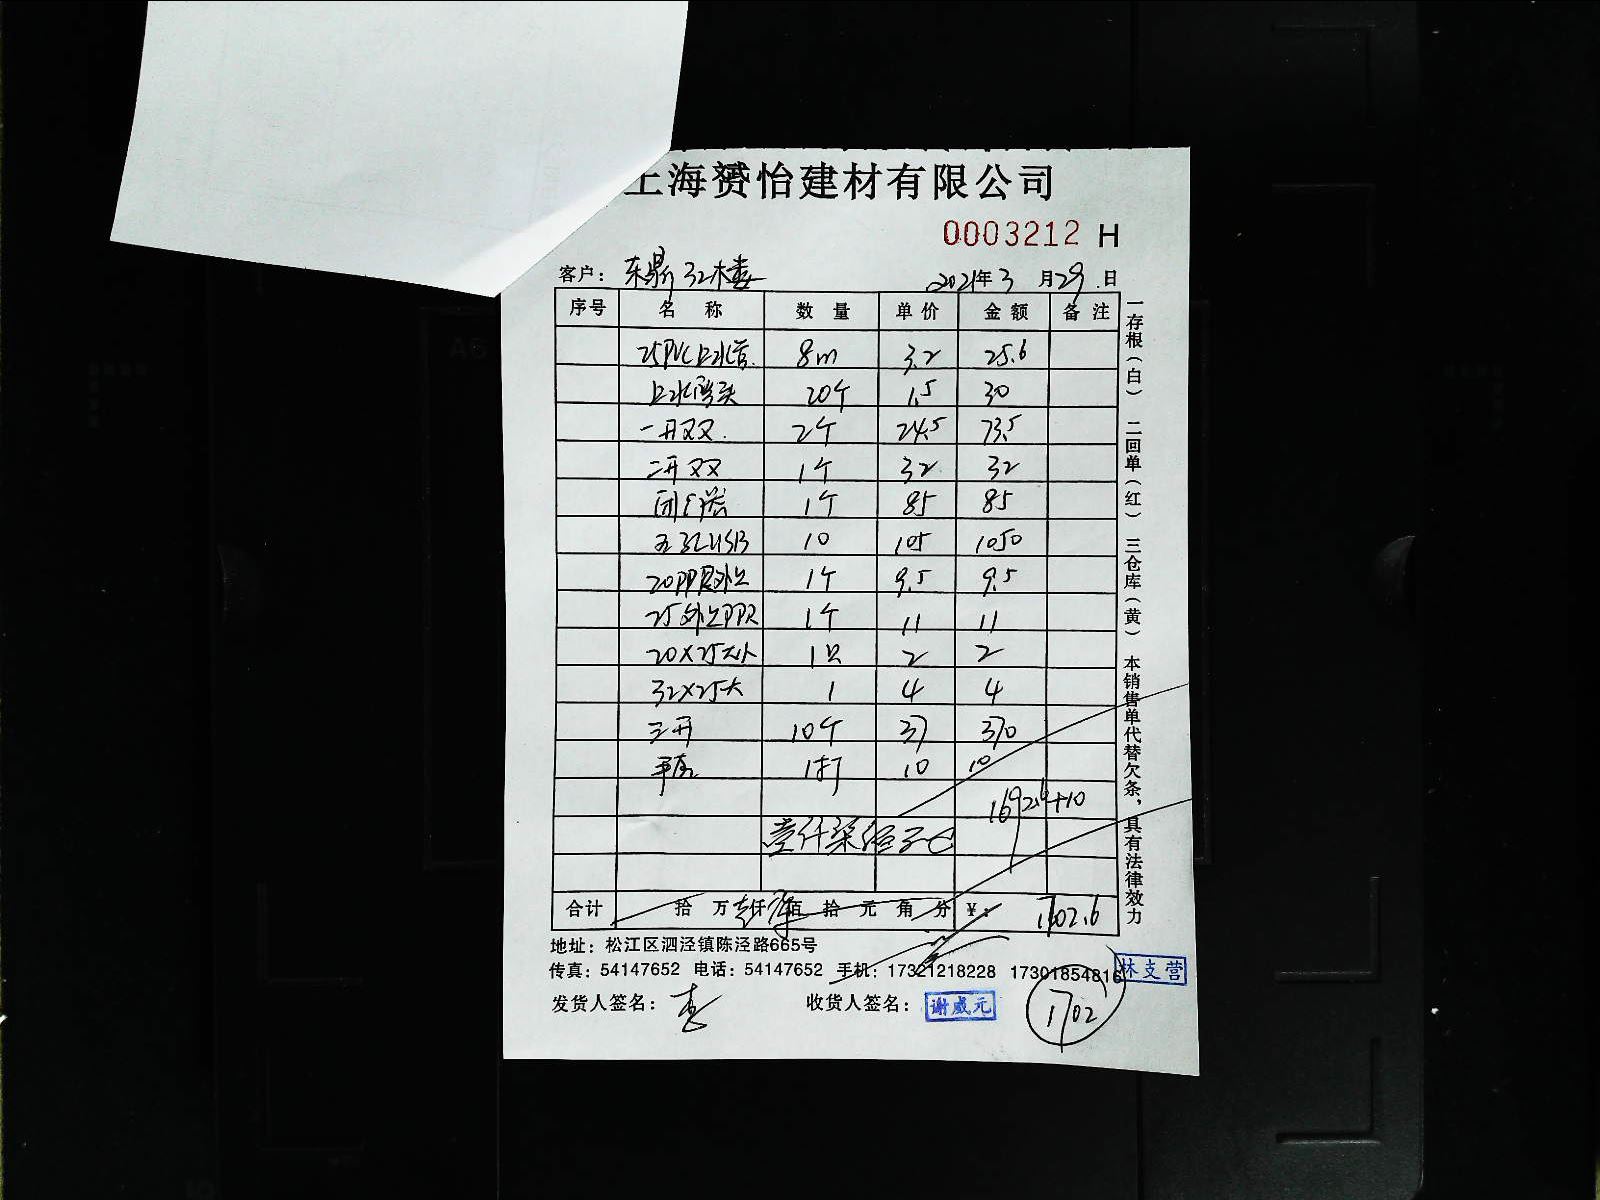 上海赟怡建材有限公司
0003212 H
客户：东鼎32楼 2021年3月29日
序号 名称 数量 单价 金额 备注
25PVC上水管 8m 3.2 25.6
上水弯头 20个 1.5 30
一开双 2个 24.5 73.5
二开双 1个 32 32
1个 85 85
五孔USB 10 105 1050
20PPR外丝 1个 9.5 9.5
25外丝PPR 1个 11 11
20×25大小 1只 2 2
32×25大 1 4 4
三开 10个 37 370
1打 10 10
1692.6+10
壹仟柒佰零
合计 拾 万 仟 佰 拾 元 角 分 ¥： 1702.6
地址：松江区泗泾镇陈泾路665号
传真：54147652 电话：54147652 手机：17321218228 17301854816
林支营
发货人签名： 收货人签名： 谢威元
1702
一存根（白） 二回单（红） 三仓库（黄） 本销售单代替欠条，具有法律效力
A6